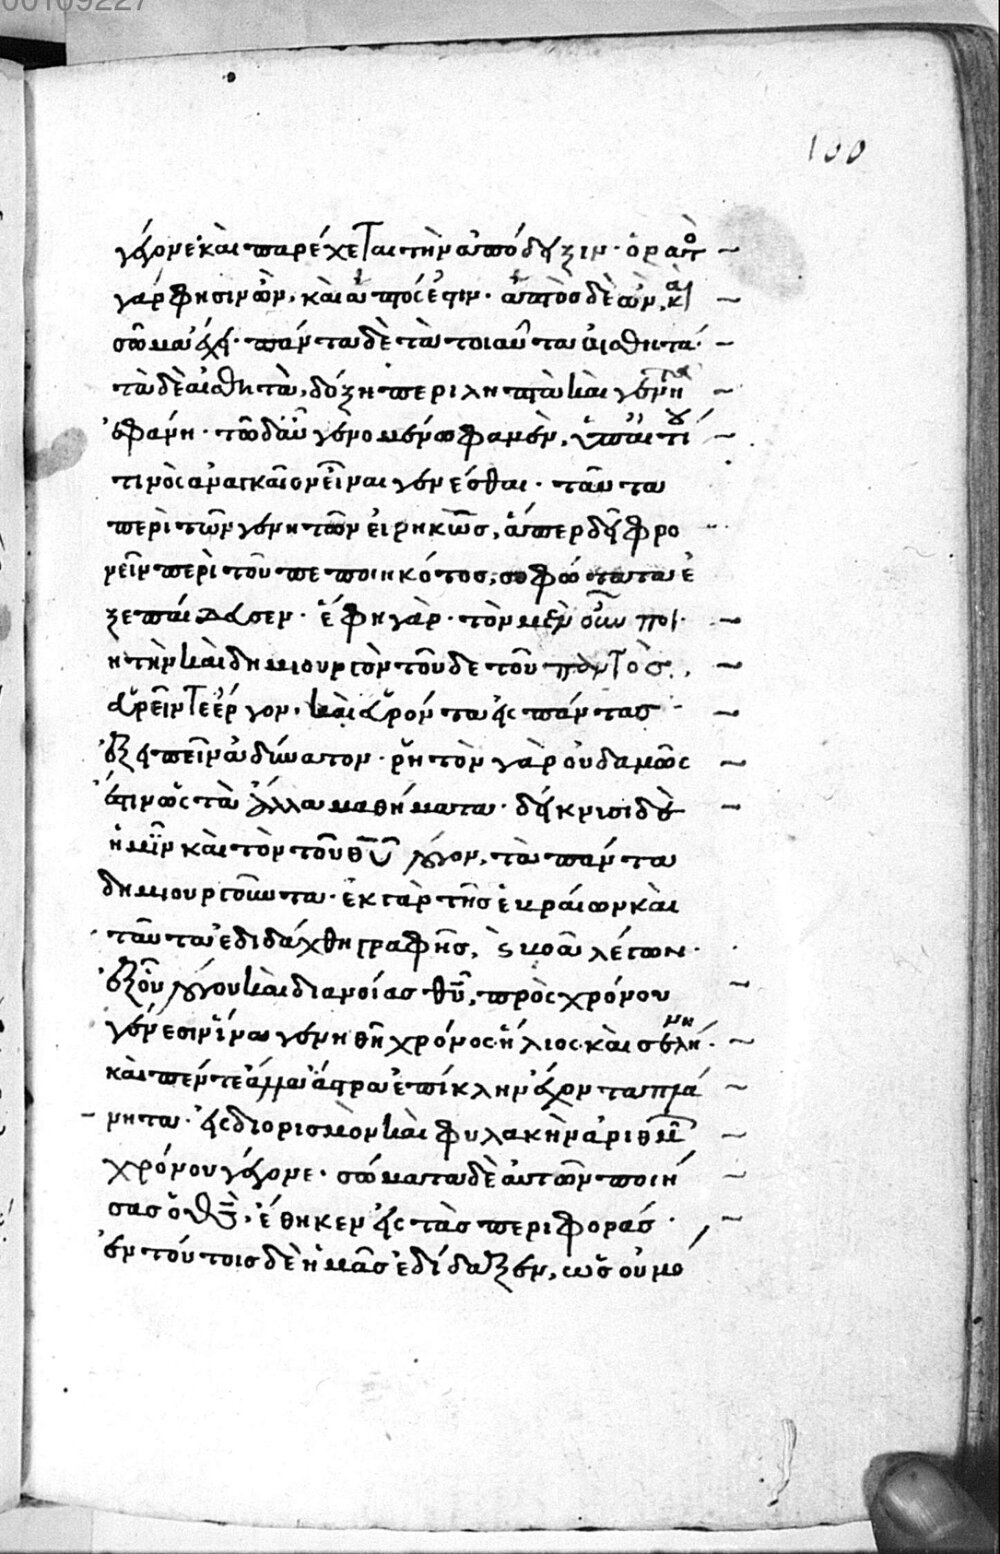 00109227
100
γέγονε καὶ παρέχεται τὴν ἀπόδειξιν· ὁρατὸ
γάρ φησιν ὢν, καὶ ἁπτός ἐστιν· ἁπτὸς δὲ ὢν, καὶ
σῶμα ἔχει· πάντα δὲ τὰ τοιαῦτα αἰσθητά·
τὰ δὲ αἰσθητὰ, δόξη περιληπτὰ καὶ γενητὰ
ἐφάνη· τῶ δ' αὖ γενομένω φαμὲν, ὑπ' αἰτίου
τινὸς ἀναγκαῖον εἶναι γενέσθαι· ταῦτα
περὶ τῶν γενητῶν εἰρηκὼς, ἅπερ δεῖ φρο
νεῖν περὶ τοῦ πεποιηκότος, σοφώτατα ἐ
ξεπαίδευσεν· ἔφη γὰρ· τὸν μὲν οὖν ποι
ητὴν καὶ δημιουργὸν τοῦδε τοῦ παντὸς,
εὑρεῖν τε ἔργον, καὶ εὑρόντα εἰς πάντας
ἐξειπεῖν ἀδύνατον· ῥητὸν γὰρ οὐδαμῶς
ἐστιν ὡς τὰ ἄλλα μαθήματα· δείκνυσι δὲ
ἡμῖν καὶ τὸν τοῦ θυ λόγον, τὰ πάντα
δημιουργοῦντα· ἐκ γὰρ τῆς ἑβραίων καὶ
ταῦτα ἐδιδάχθη γραφῆς, βοᾶ λέγων·
ἐξ οὖν λόγου καὶ διανοίας θυ, πρὸς χρόνου
γένεσιν ἵνα γενηθῆ χρόνος ἥλιος καὶ σελήνη·
καὶ πέντε ἄλλα ἄστρα ἐπίκλην ἔχοντα πλα
νητα· εἰς διορισμὸν καὶ φυλακὴν ἀριθμῶν
χρόνου γέγονε· σώματα δὲ αὐτῶν ποιή
σας ὁ θς, ἔθηκεν εἰς τὰς περιφοράς·
ἐν τούτοις δὲ ἡμᾶς ἐδίδαξεν, ὡς οὐ μο